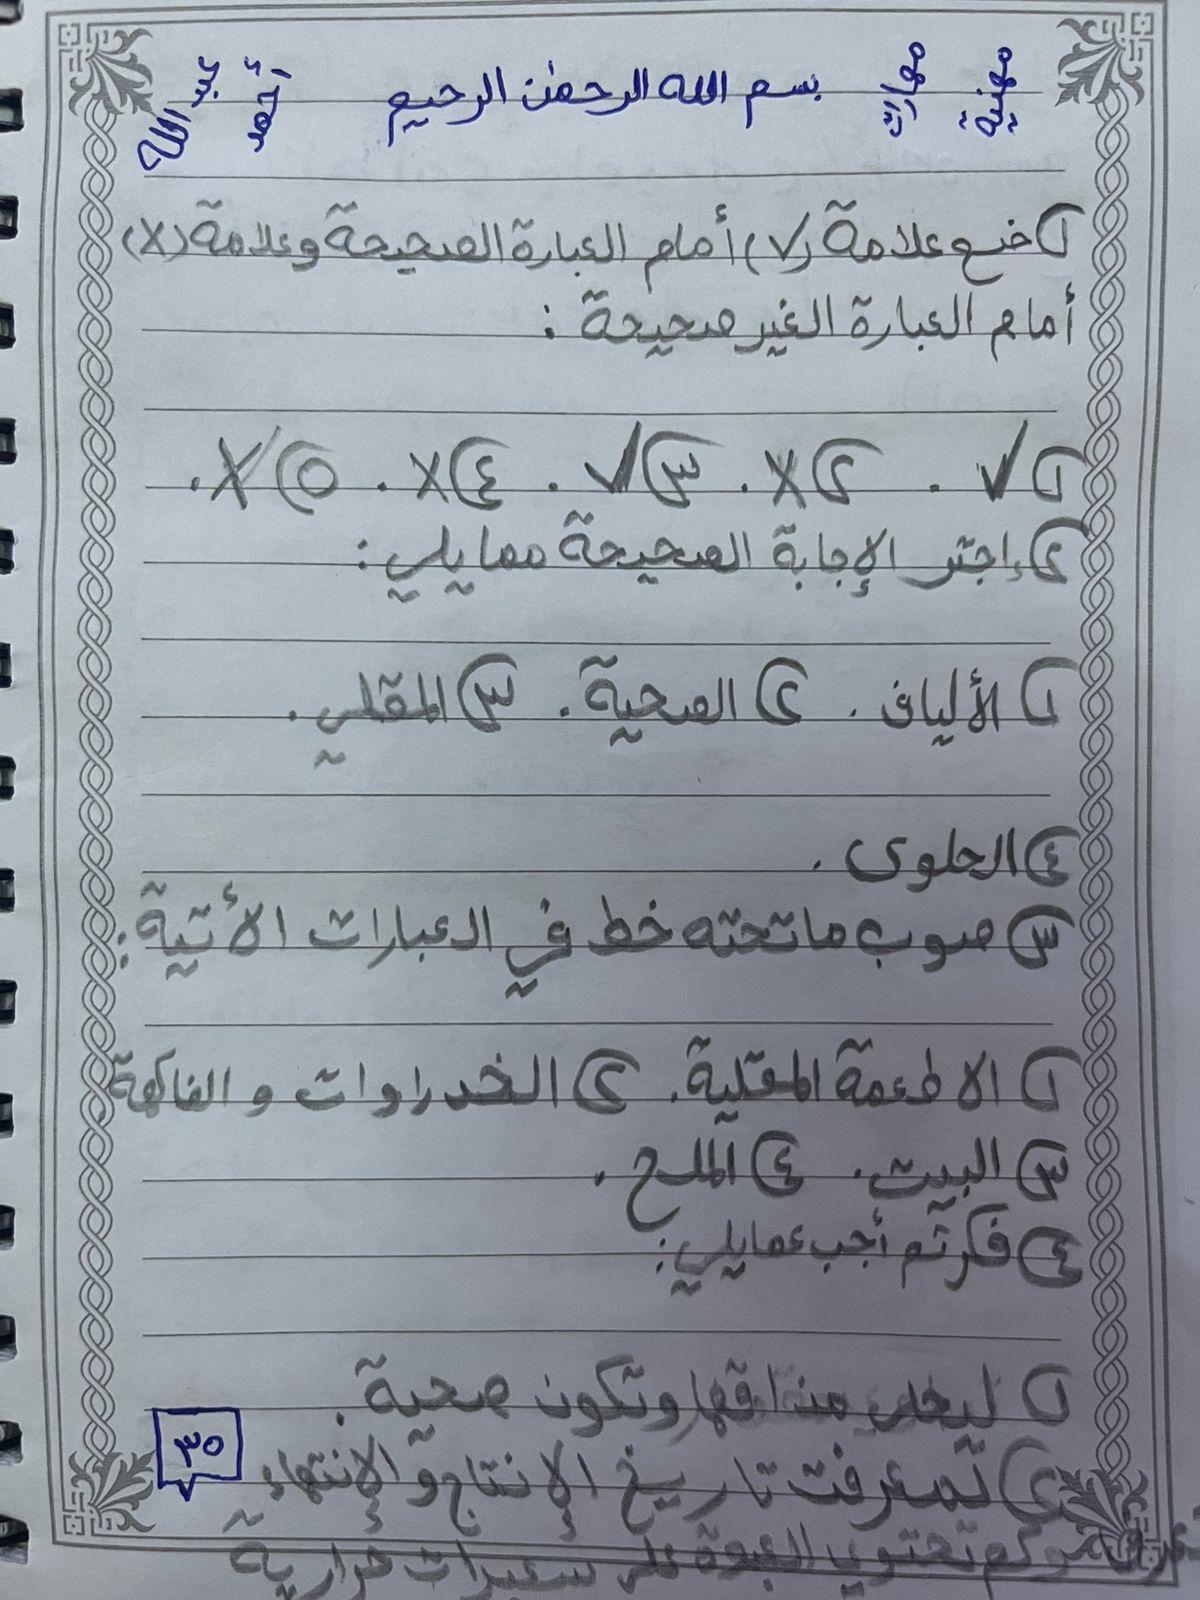 مهنية مهارات بسم الله الرحمٰن الرحيم تحمد عبدالله
١) ضع علامة (√) أمام العبارة الصحيحة وعلامة (X)
أمام العبارة الغير صحيحة :
١) √ . ٢) X . ٣) √ . ٤) X . ٥) X .
٢) إجتر الإجابة الصحيحة ممايلي :
١) الألياف . ٢) الصحية . ٣) المقلي .
٤) الحلوى .
٣) صوب ماتحته خط في العبارات الأتية :
١) الاطعمة المقلية . ٢) الخدراوات و الفاكهة
٣) البيت . ٤) الملح .
٤) فكر ثم أجب عمايلي :
١) ليحلى مذاقها وتكون صحية .
٢) لمعرفت تاريخ الإنتاج و الإنتهاء
وكم تحتوي العبوة على سعرات حرارية
٣٥